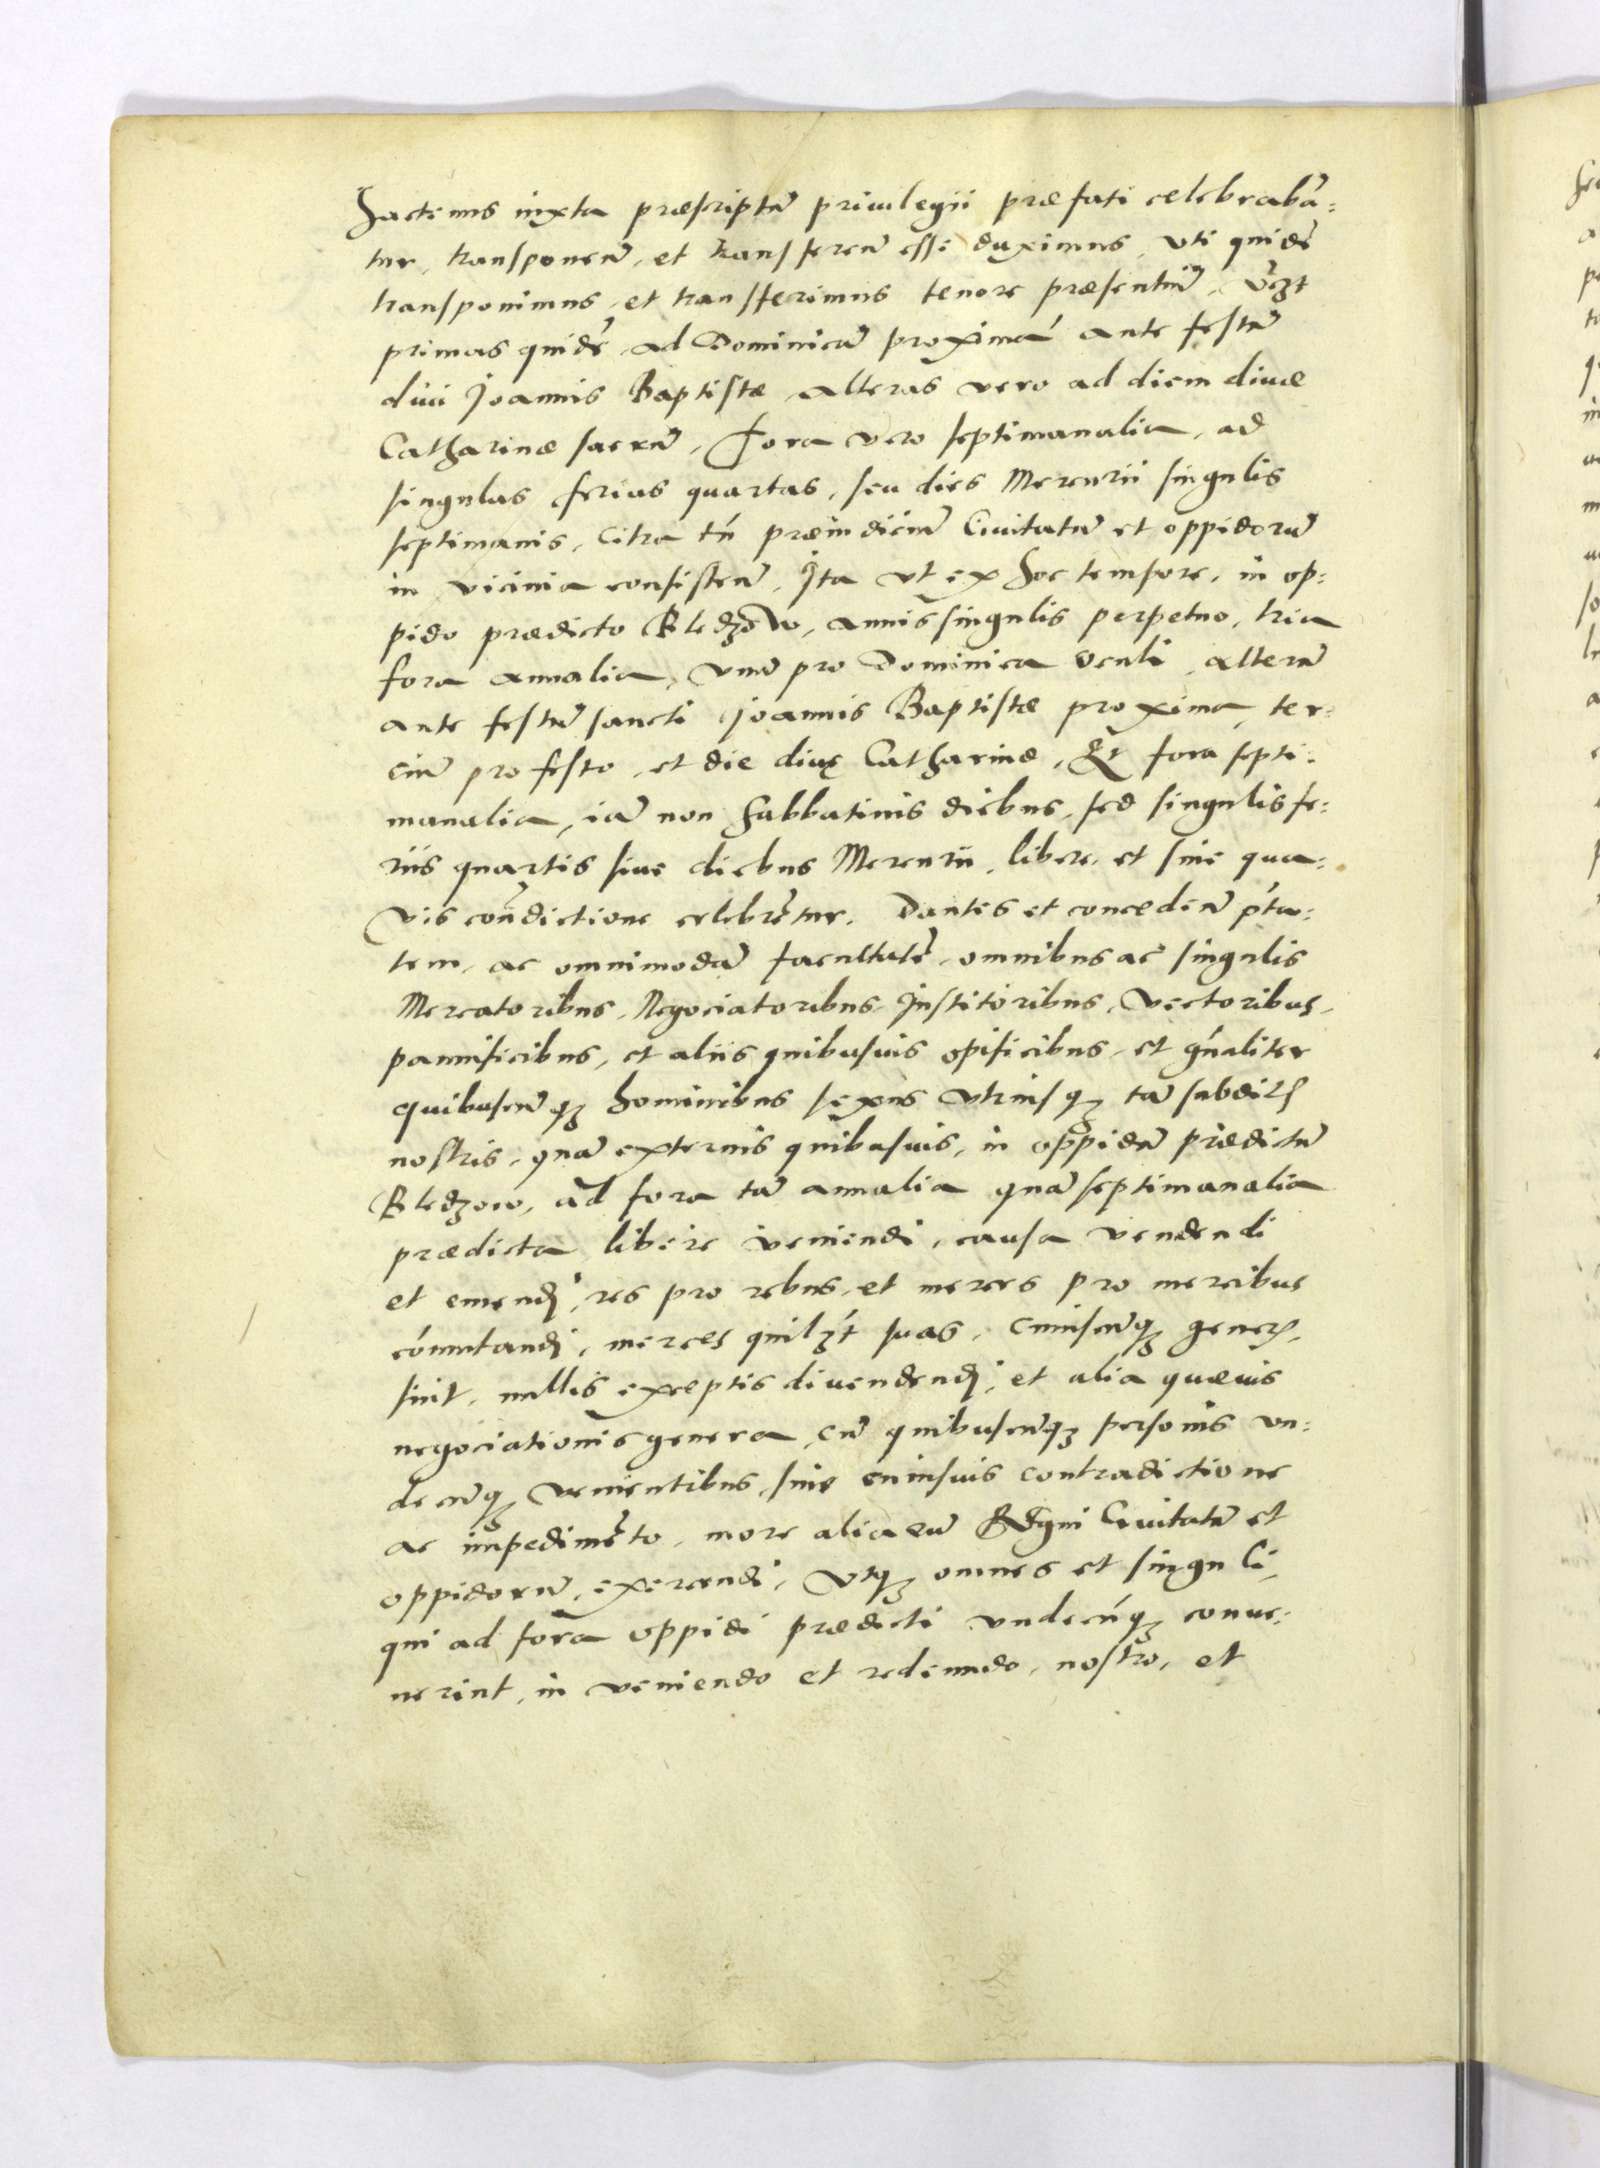 hactenus iuxta præscriptū priuilegii præfati celebrabā:
tur, transponen̄, et transferen̄ esse duximus, vti quidē
transponimus, et transferimus tenore præsentiū, vꝫt
primas quidē ad Dominicā proximā ante festū
diui Joannis Baptistæ alteras vero ad diem diuæ
Catharinæ sacrū, fora vero septimanalia, ad
singulas ferias quartas, seu dies Mercurii singulis
septimanis, Citra tn̄ præiudiciū Ciuitatū et oppidorū
in vicinia consisten̄, Ita vt ex hoc tempore, in op:
pido prædicto Bledzow, annis singulis perpetuo, tria
fora annalia, vnū pro Dominica Oculi, alterū
ante festū sancti Joannis Baptistæ proxima, ter:
ciū pro festo, et die diuę Catharinæ, Et fora septi:
manalia, iā non Sabbatinis diebus, sed singulis fe:
riis quartis siue diebus Mercurii, libere, et sine qua:
vis condictione celebrētur, Dantes et conceden̄ pt̄a:
tem, ac omnimodā facultatē, omnibus ac singulis
Mercatoribus, Negociatoribus, Institoribus, Vectoribus,
pannificibus, et aliis quibusuis opificibus, et gn̄aliter
quibuscūqꝫ hominibus sexus vtriusqꝫ tā subditis
nostris, quā externis quibusuis, in oppidū prædictū
Bledzow, ad fora tā annalia quā septimanalia
prædicta libere veniendi, causa vendendi
et emendi, res pro rebus, et merces pro mercibus
cōmutandi, merces quilꝫt suas, cuiuscūqꝫ generis
sint, nullis exceptis divendendi, et alia quæuis
negociationis genera, cū quibuscūqꝫ personis vn:
decūqꝫ venientibus, sine cuiusuis contradictione
ac impedimēto, more aliarū Regni Ciuitatū et
oppidorū, exercendi, Vtqꝫ omnes et singuli,
qui ad fora oppidi prædicti vndecūqꝫ conue:
nerint, in veniendo et redeundo, nostro, et